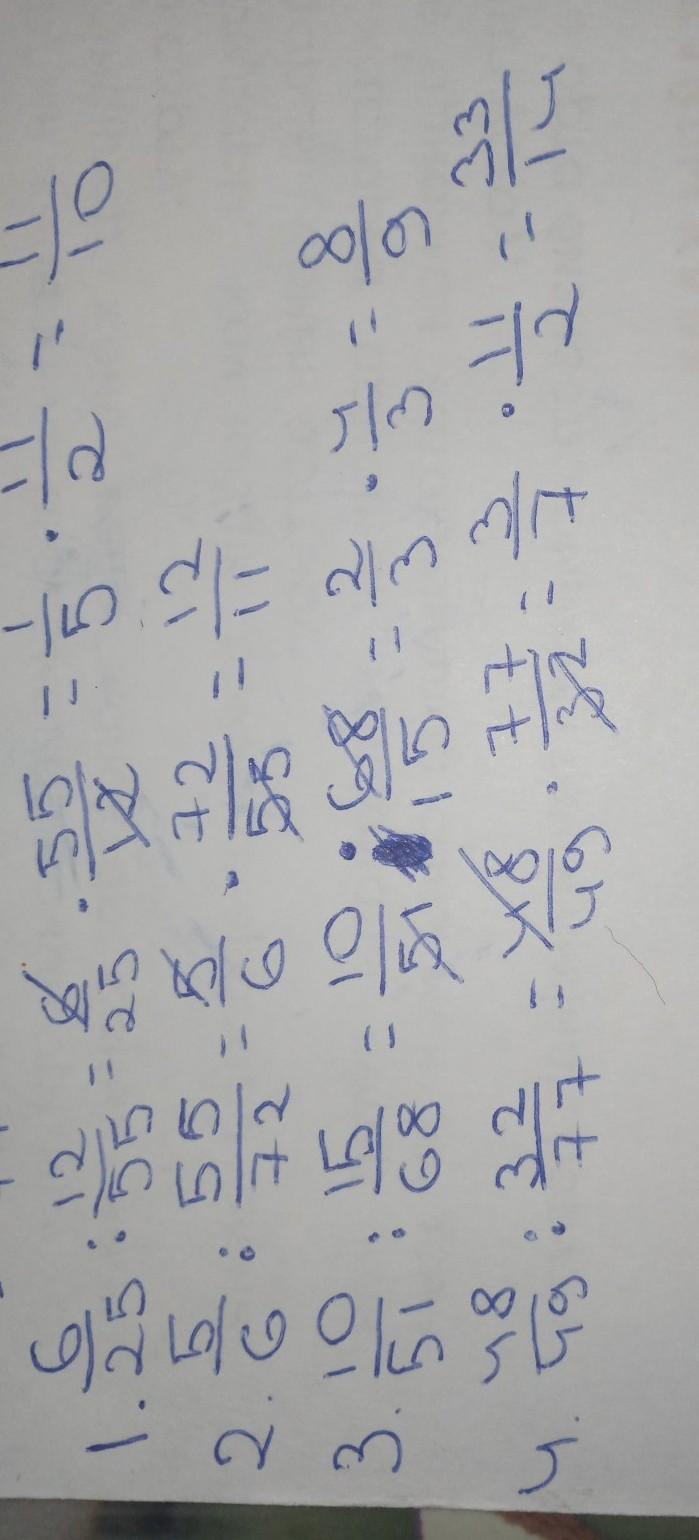 1. 6/25 : 12/55 = 6/25 · 55/12 = 1/5 · 11/2 = 11/10
2. 5/6 : 55/72 = 5/6 · 72/55 = 12/11
3. 10/51 : 15/68 = 10/51 · 68/15 = 2/3 · 4/3 = 8/9
4. 48/49 : 32/77 = 48/49 · 77/32 = 3/7 · 11/2 = 33/14